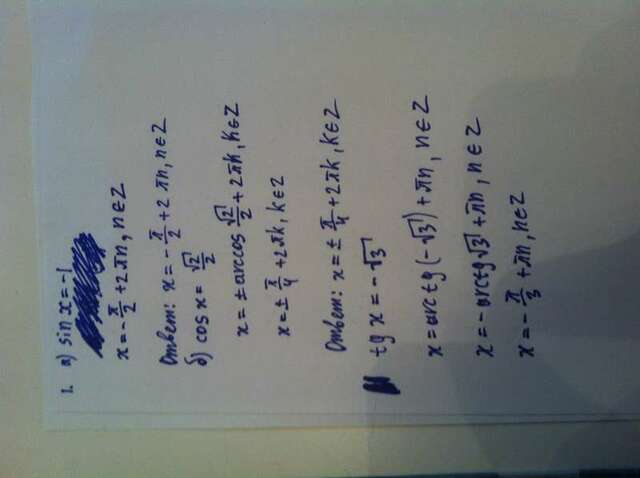 1. а) sin x = -1
x = - π/2 + 2πn, n ∈ Z
Ответ: x = - π/2 + 2πn, n ∈ Z
б) cos x = √2/2
x = ± arccos √2/2 + 2πk, k ∈ Z
x = ± π/4 + 2πk, k ∈ Z
Ответ: x = ± π/4 + 2πk, k ∈ Z
tg x = - √3
x = arctg (-√3) + πn, n ∈ Z
x = - arctg √3 + πn, n ∈ Z
x = - π/3 + πn, n ∈ Z